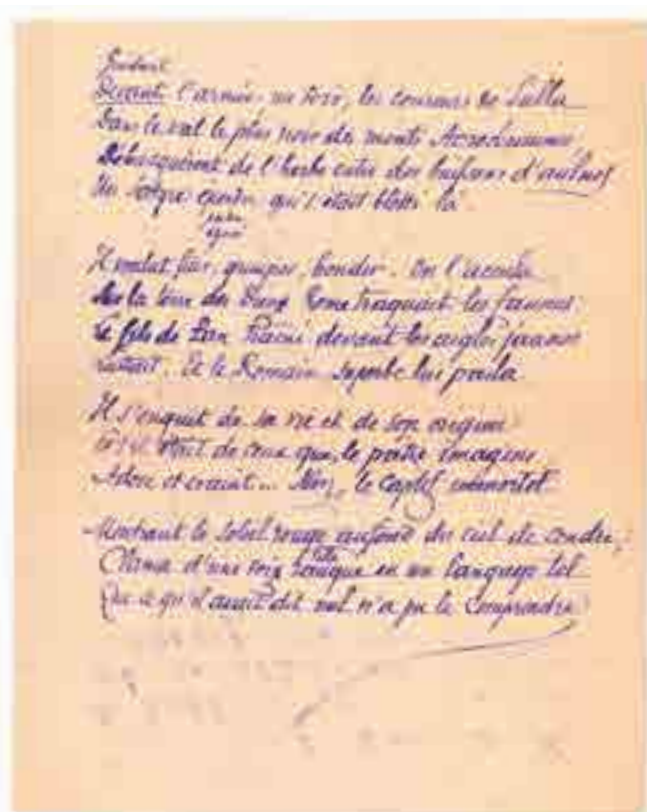 Devant l'armée, un soir, les coureurs de Sulla
Dans le val le plus noir des monts
Débusquèrent de l'herbe entre des buissons d'aulnes
Un qui s'était blotti là
Il voulut fuir, grimper, bondir. On l'accula
Sur la terre des Dieux Rome traquait les faunes
Le fils de Pan devant les aigles jaunes
Et le Romain superbe lui parla
Il s'enquit de sa vie et de son origine
Et s'il était de ceux que le pâtre imagine,
Adore et craint... le captif immortel
Montrant le soleil rouge au fond du ciel de cendre,
Clama d'une voix rauque en un langage tel
Que ce qu'il avait dit nul n'a pu le comprendre